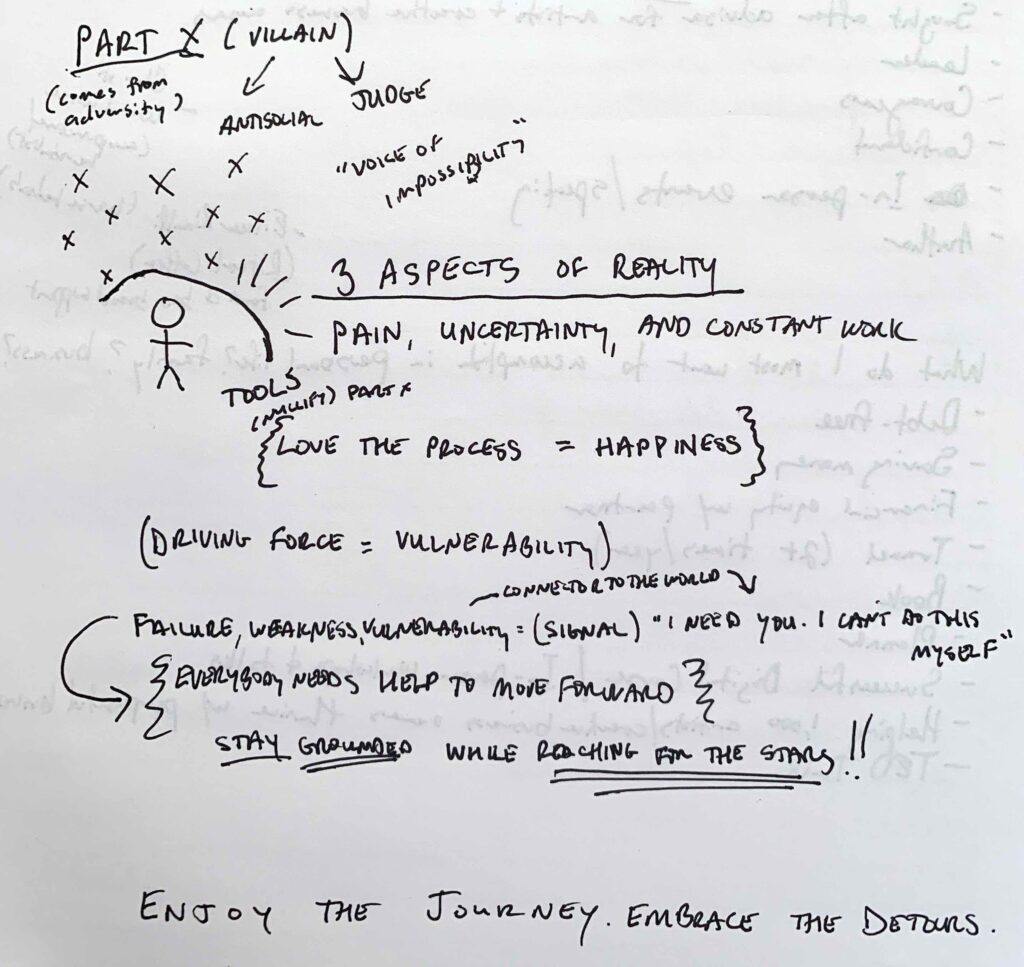 PART X (VILLAIN)
(comes from
adversity)
ANTISOCIAL
JUDGE
"VOICE OF
IMPOSSIBILITY"
3 ASPECTS OF REALITY
- PAIN, UNCERTAINTY, AND CONSTANT WORK
TOOLS
(NULLIFY) PART X
{LOVE THE PROCESS = HAPPINESS}
(DRIVING FORCE = VULNERABILITY)
CONNECTOR TO THE WORLD
FAILURE, WEAKNESS, VULNERABILITY = (SIGNAL) "I NEED YOU. I CAN'T DO THIS
MYSELF"
{EVERYBODY NEEDS HELP TO MOVE FORWARD}
STAY GROUNDED WHILE REACHING FOR THE STARS!!
ENJOY THE JOURNEY. EMBRACE THE DETOURS.